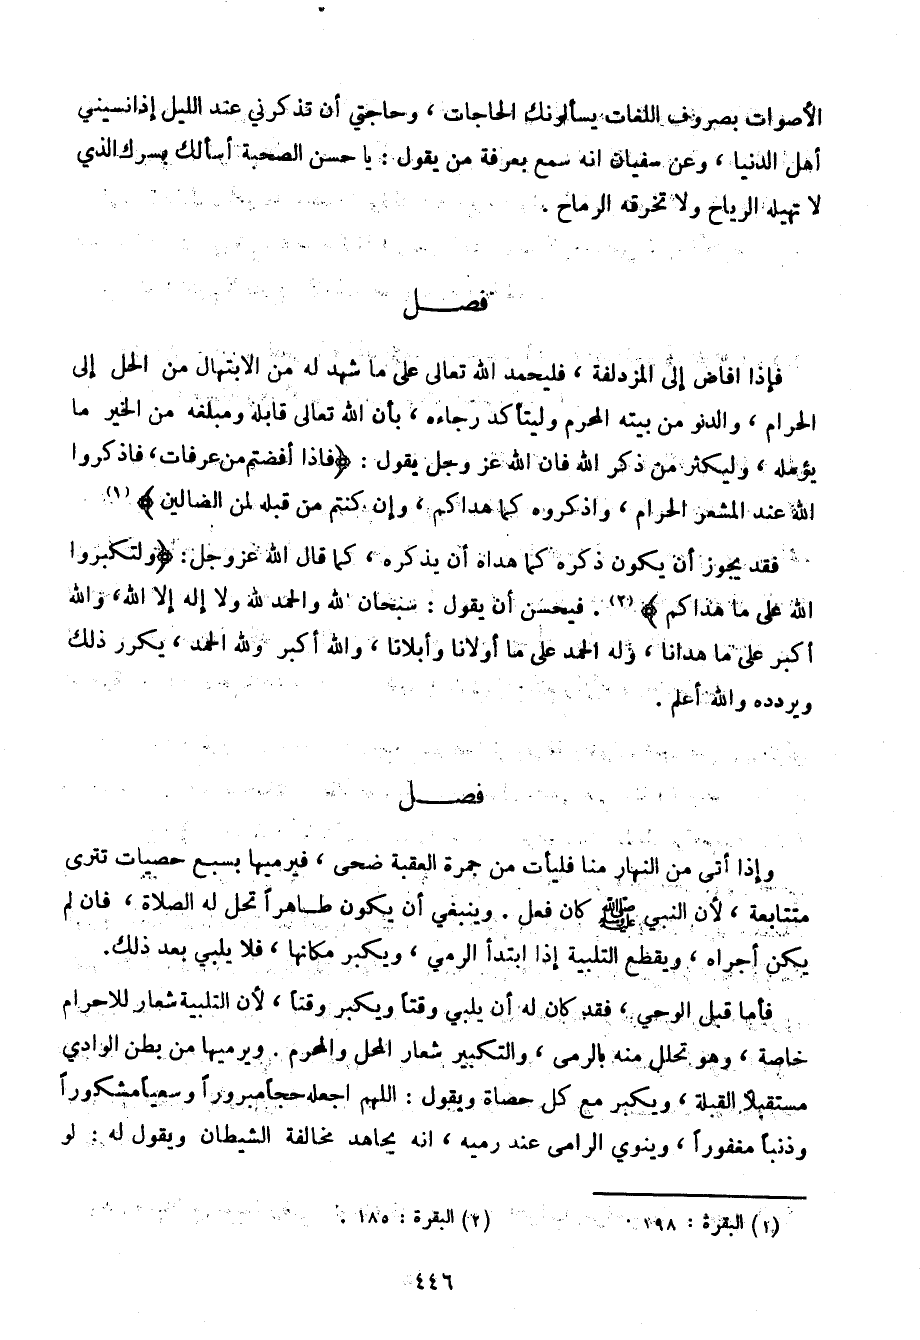 الأصوات بصروف اللغات يسألونك الحاجات ، وحاجتي أن تذكرني عند الليل إذانسيني
أهل الدنيا ، وعن سفيان انه سمع بعرفة من يقول : يا حسن الصحبة أسألك بسرك الذي
لا تهيله الرياح ولا تخرقه الرماح .
فصـــل
فإذا افاض إلى المزدلفة ، فليحمد الله تعالى على ما شهد له من الابتهال من الحل إلى
الحرام ، والدنو من بيته المحرم وليتأكد رجاءه ، بأن الله تعالى قابله ومبلغه من الخير ما
يؤمله ، وليكثر من ذكر الله فان الله عز وجل يقول : ﴿فاذا أفضتم من عرفات، فاذكروا
الله عند المشعر الحرام ، واذكروه كما هداكم ، وإن كنتم من قبله لمن الضالين ﴾ (١)
فقد يجوز أن يكون ذكره كما هداه أن يذكره ، كما قال الله عزوجل: ﴿ولتكبروا
الله على ما هداكم ﴾ (٢) . فيحسن أن يقول : سبحان لله والحمد لله ولا إله إلا الله، والله
أكبر على ما هدانا ، وله الحمد على ما أولانا وأبلانا ، والله أكبر ولله الحمد ، يكرر ذلك
ويردده والله أعلم .
فصـــل
وإذا أتى من النهار منا فليأت من جمرة العقبة ضحى ، فيرميها بسبع حصيات تترى
متتابعة ، لأن النبي ﷺ كان فعل . وينبغي أن يكون طـاهراً تحل له الصلاة ، فان لم
يكن أجراه ، ويقطع التلبية إذا ابتدأ الرمي ، ويكبر مكانها ، فلا يلبي بعد ذلك.
فأما قبل الوحي ، فقد كان له أن يلبي وقتاً ويكبر وقتاً ، لأن التلبية شعار للاحرام
خاصة ، وهو تحلل منه بالرمى ، والتكبير شعار المحل والمحرم . ويرميها من بطن الوادي
مستقبلاً القبلة ، ويكبر مع كل حصاة ويقول : اللهم اجعله حجاً مبروراً وسعياً مشكوراً
وذنباً مغفوراً ، وينوي الرامى عند رميه ، انه يجاهد مخالفة الشيطان ويقول له : لو
(١) البقرة : ١٩٨ . (٢) البقرة : ١٨٥ .
٤٤٦